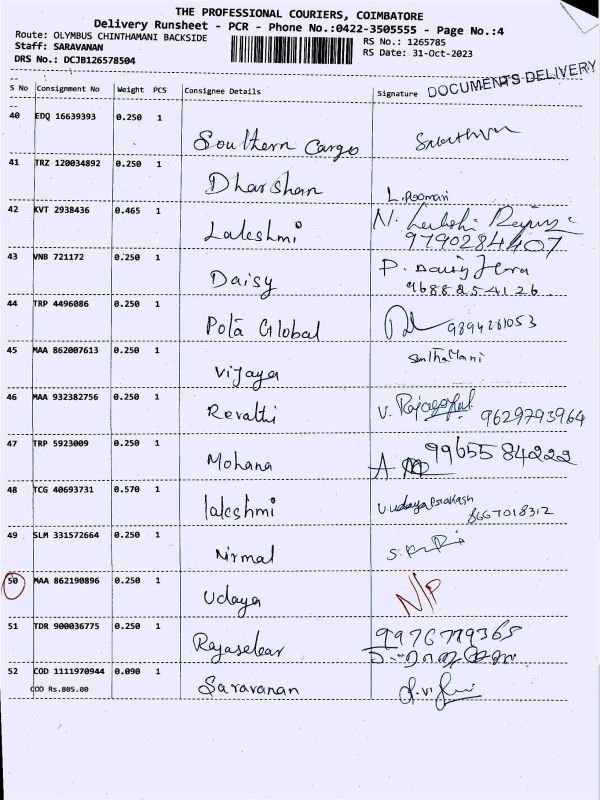 THE PROFESSIONAL COURIERS, COIMBATORE
Delivery Runsheet - PCR - Phone No.:0422-3505555 - Page No.:4
Route: OLYMBUS CHINTHAMANI BACKSIDE
Staff: SARAVANAN
RS No.: 1265785
DRS No.: DCJB126578504
RS Date: 31-Oct-2023
DOCUMENTS DELIVERY
S No Consignment No Weight PCS Consignee Details Signature
40 EDQ 16639393 0.250 1
Southern Cargo
41 TRZ 120034892 0.250 1
Dharshan
L. Poomani
42 KVT 2938436 0.465 1
Lakshmi
9790284407
43 VNB 721172 0.250 1
Daisy
P. Daisy
9688854126
44 TRP 4496086 0.250 1
Pola Global 9894261053
45 MAA 862007613 0.250 1
Vijaya
Santhamani
46 MAA 932382756 0.250 1
Revathi V. Rajagopal 9629793964
47 TRP 5923009 0.250 1
Mohana 9965584222
48 TCG 40693731 0.570 1
lakshmi
udayaprakash
8667018312
49 SLM 331572664 0.250 1
Nirmal
50 MAA 862190896 0.250 1
Udaya N/P
51 TDR 900036775 0.250 1
Rajasekar
9976779365
52 COD 1111970944 0.090 1
Saravanan
COD Rs.805.00